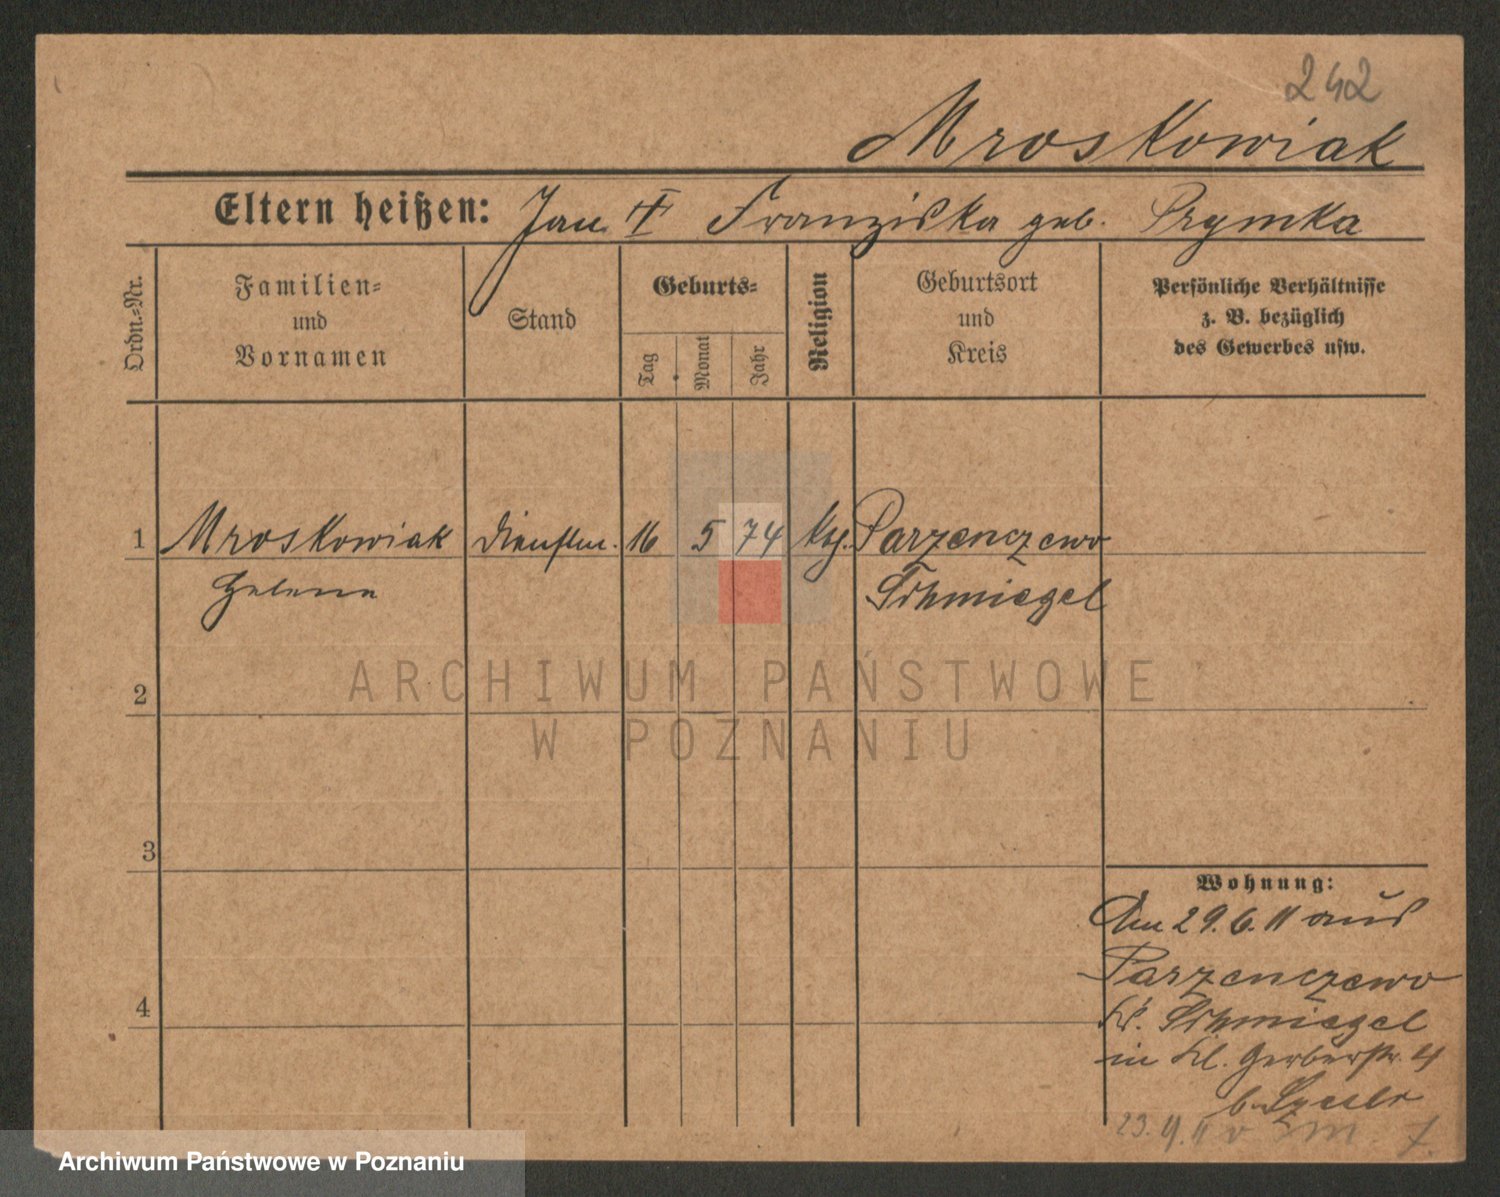 242
Mroskowiak
Eltern heißen: Jan † Franziska geb. Prymka
Ordn.-Nr.
Familien-
und
Vornamen
Stand
Geburts-
Tag
Monat
Jahr
Religion
Geburtsort
und
Kreis
Persönliche Verhältnisse
z. B. bezüglich
des Gewerbes usw.
1 Mroskowiak Dienstm. 16 5 74 Parzenczewo
Helena Schmiegel
ARCHIWUM PAŃSTWOWE
W POZNANIU
2
3
4
Wohnung:
Am 29.6.11 aus
Parzenczewo
Kr. Schmiegel
in Kl. Gerberstr. 4
b.
23.
Archiwum Państwowe w Poznaniu